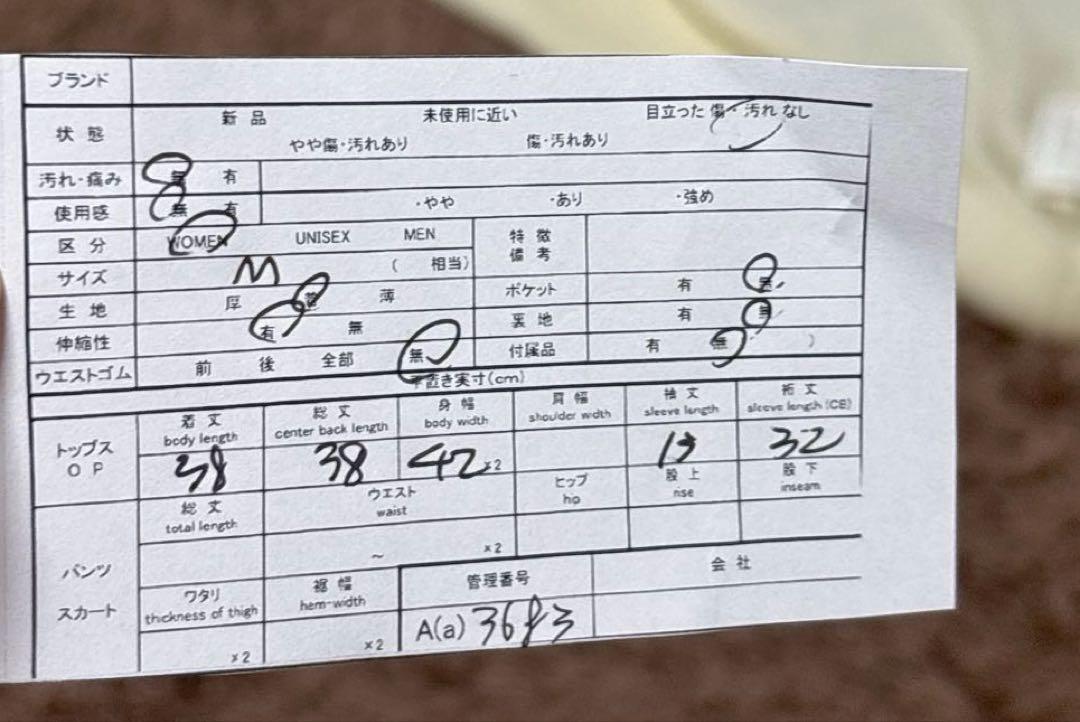 ブランド
状態 新品 未使用に近い 目立った 傷・汚れ なし
やや傷・汚れあり 傷・汚れあり
汚れ・痛み 無 有
使用感 無 有 ・やや ・あり ・強め
区分 WOMEN UNISEX MEN 特徴 備考
サイズ M ( 相当)
生地 厚 普 薄 ポケット 有 無
伸縮性 有 無 裏地 有 無
ウエストゴム 前 後 全部 無 付属品 有 無 )
平置き実寸(cm)
トップス OP 着丈 body length 総丈 center back length 身幅 body width 肩幅 shoulder wdth 袖丈 sleeve length 裄丈 sleeve length (CB)
38 38 42 ×2 32
パンツ スカート 総丈 total length ウエスト waist ヒップ hip 股上 rise 股下 inseam
~ ×2
ワタリ thickness of thigh 裾幅 hem-width 管理番号 会社
×2 ×2 A(a)